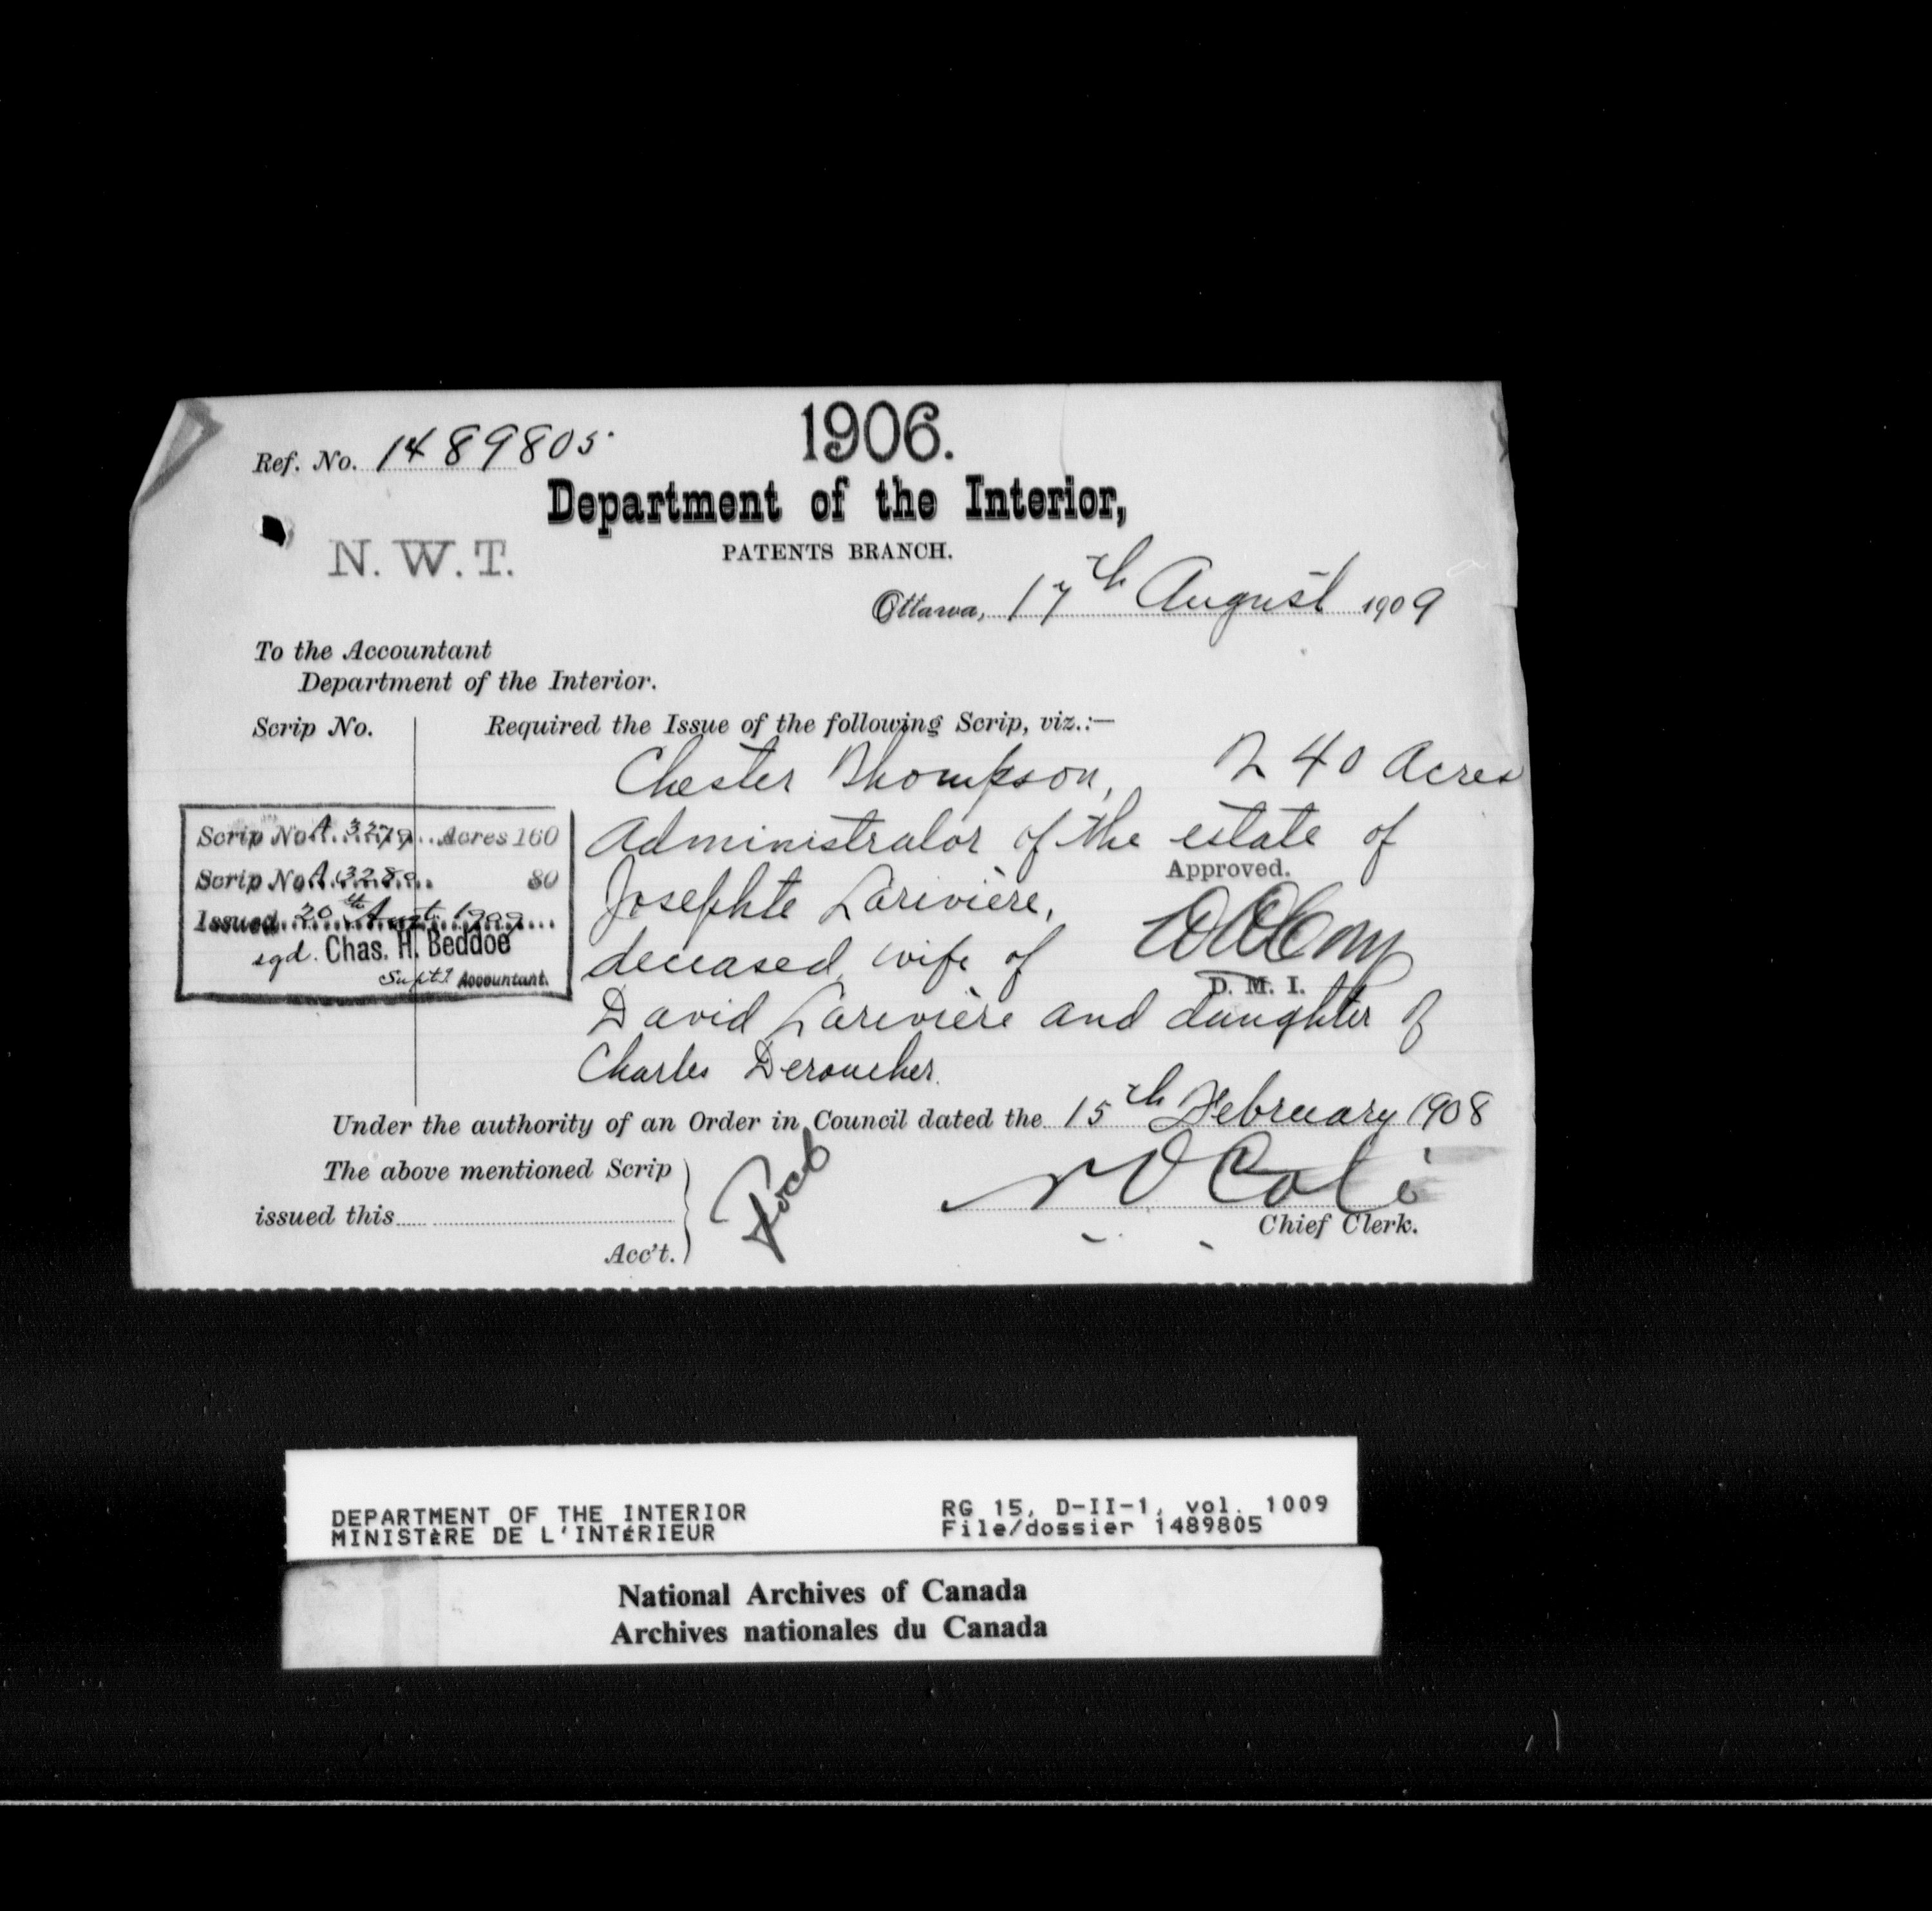 1906.
Ref. No. 1489805
Department of the Interior,
PATENTS BRANCH.
N. W. T.
Ottawa, 17th August 1909
To the Accountant
Department of the Interior.
Scrip No.
Required the Issue of the following Scrip, viz.:—
Chester Thompson, 240 Acres
Administrator of the estate of
Josephte Larivière,
deceased, wife of
David Larivière and daughter of
Charles Deroucher.
Scrip No. A. 3279 Acres 160
Scrip No. A 3280 80
Issued 20th Augt. 1909
sgd. Chas. H. Beddoe
Accountant.
Approved.
D. M. I.
Under the authority of an Order in Council dated the 15th February 1908
The above mentioned Scrip
issued this
Acc't.
N O Coté
Chief Clerk.
DEPARTMENT OF THE INTERIOR
MINISTÈRE DE L'INTÉRIEUR
RG 15, D-II-1, vol. 1009
File/dossier 1489805
National Archives of Canada
Archives nationales du Canada